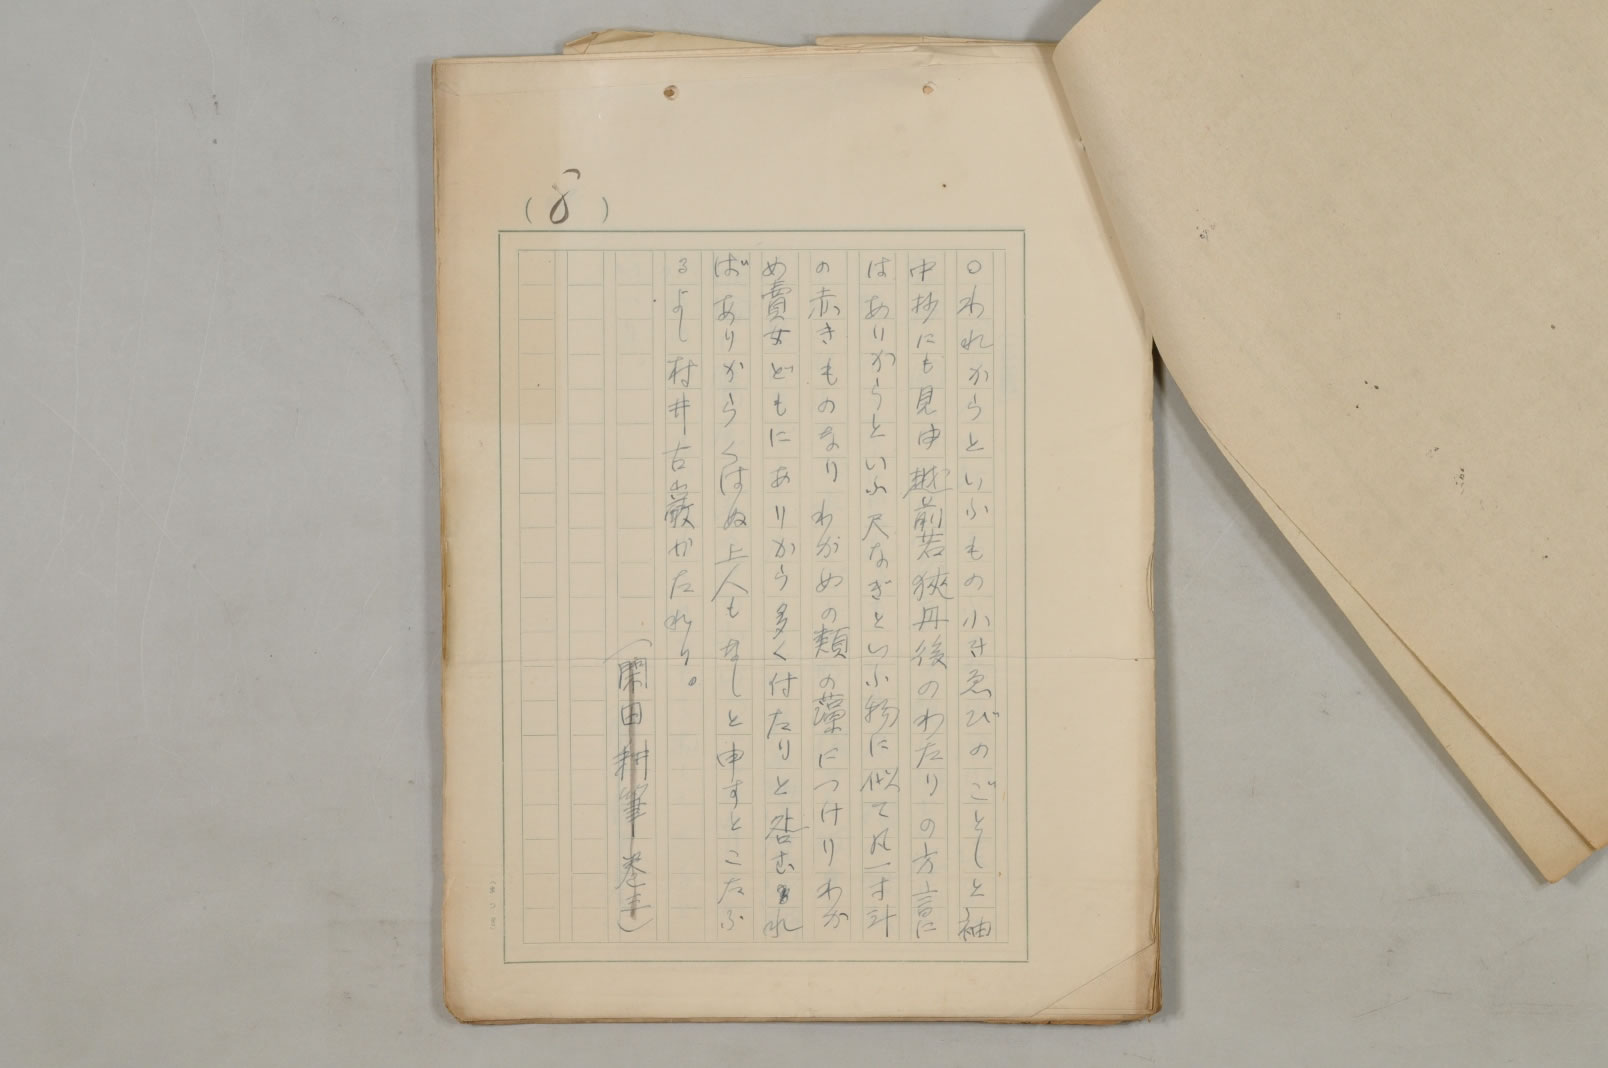 (8)
○われからといふもの小さゑびのごとしと袖
中抄にも見ゆ越前若狭丹後のわたりの方言に
はありからといふ尺なぎといふ物に似て凡一寸計
の赤きものなりわがめの類の藻につけりわか
め賣女どもにありから多く付たりと咎むれ
ばありからくはぬ上人もなしと申すとこたふ
るよし村井古巌かたれり。
(閑田耕筆 巻三)